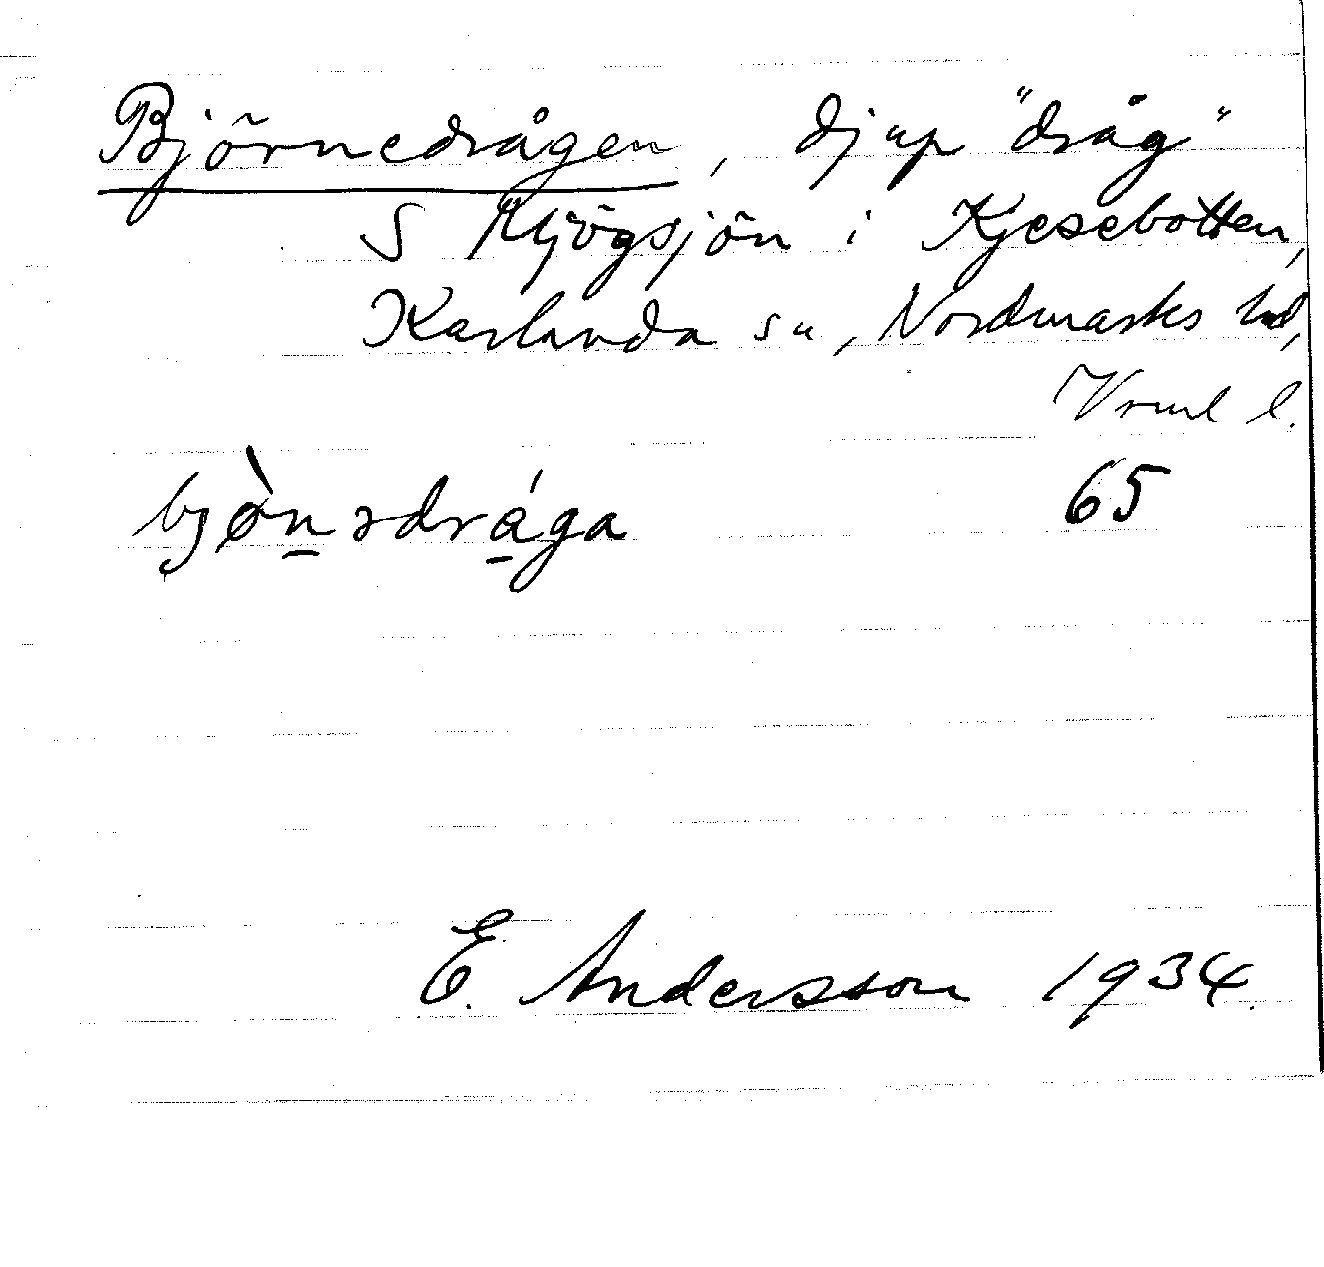 Björnedrågen, djup "dråg"
S Kljögsjön i Kjesebotten,
Karlanda sn, Nordmarks hd,
Vrml l.
bjø̀nədrága 65
E. Andersson 1934.